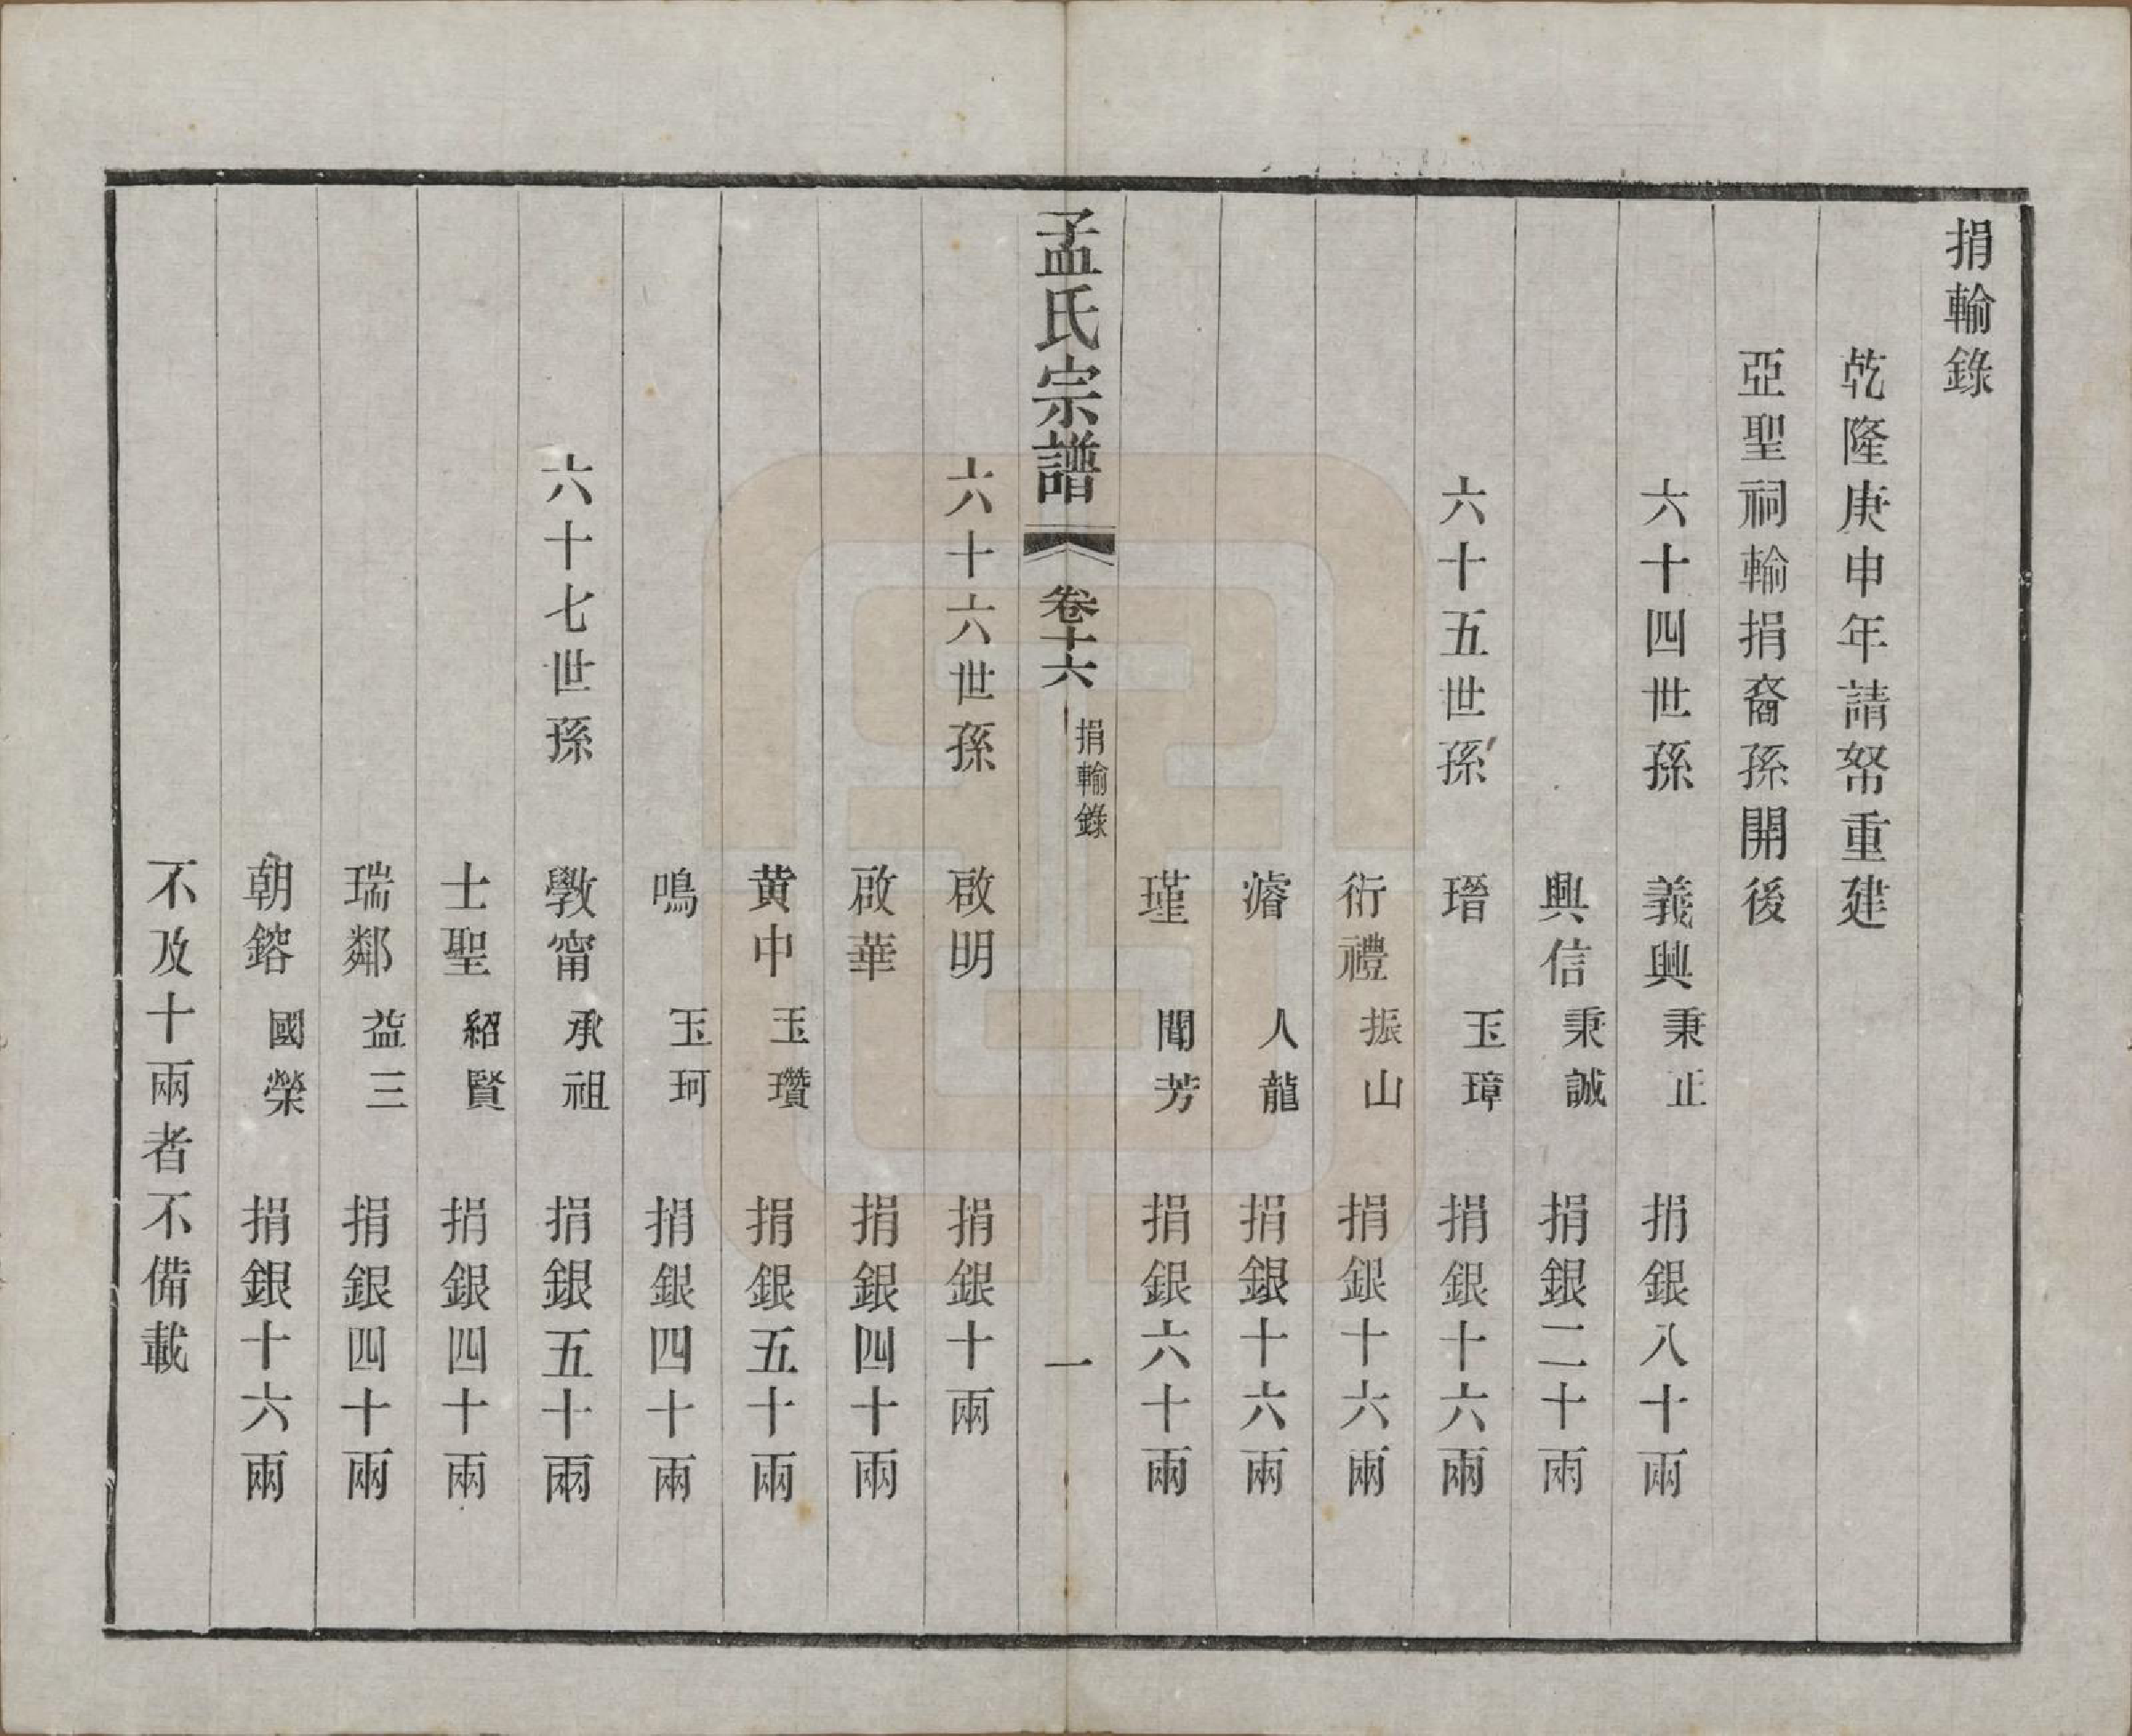 捐輸錄
乾隆庚申年請帑重建
亞聖祠輸捐裔孫開後
六十四世孫 義興 秉正 捐銀八十兩
興信 秉誠 捐銀二十兩
六十五世孫 瑨 玉璋 捐銀十六兩
衍禮 振山 捐銀十六兩
濬 人龍 捐銀十六兩
瑾 聞芳 捐銀六十兩
孟氏宗譜 卷十六 捐輸錄 一
六十六世孫 啟明 捐銀十兩
啟華 捐銀四十兩
黃中 玉瓚 捐銀五十兩
鳴 玉珂 捐銀四十兩
六十七世孫 斆甯 承祖 捐銀五十兩
士聖 紹賢 捐銀四十兩
瑞鄰 益三 捐銀四十兩
朝鎔 國榮 捐銀十六兩
不及十兩者不備載